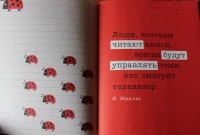 Люди, которые
читают книги,
всегда будут
управлять теми,
кто смотрит
телевизор.
Ф. Жанлис